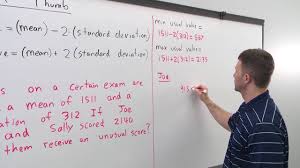 Thumb
= (mean) - 2 (standard deviation)
e = (mean) + 2 (standard deviation)
s on a certain exam are
a mean of 1511 and a
ation of 312 If Joe
and Sally scored 2140
them receive an unusual score?
min usual value =
1511 - 2(312) = 887
max usual value =
1511 + 2(312) = 2135
Joe